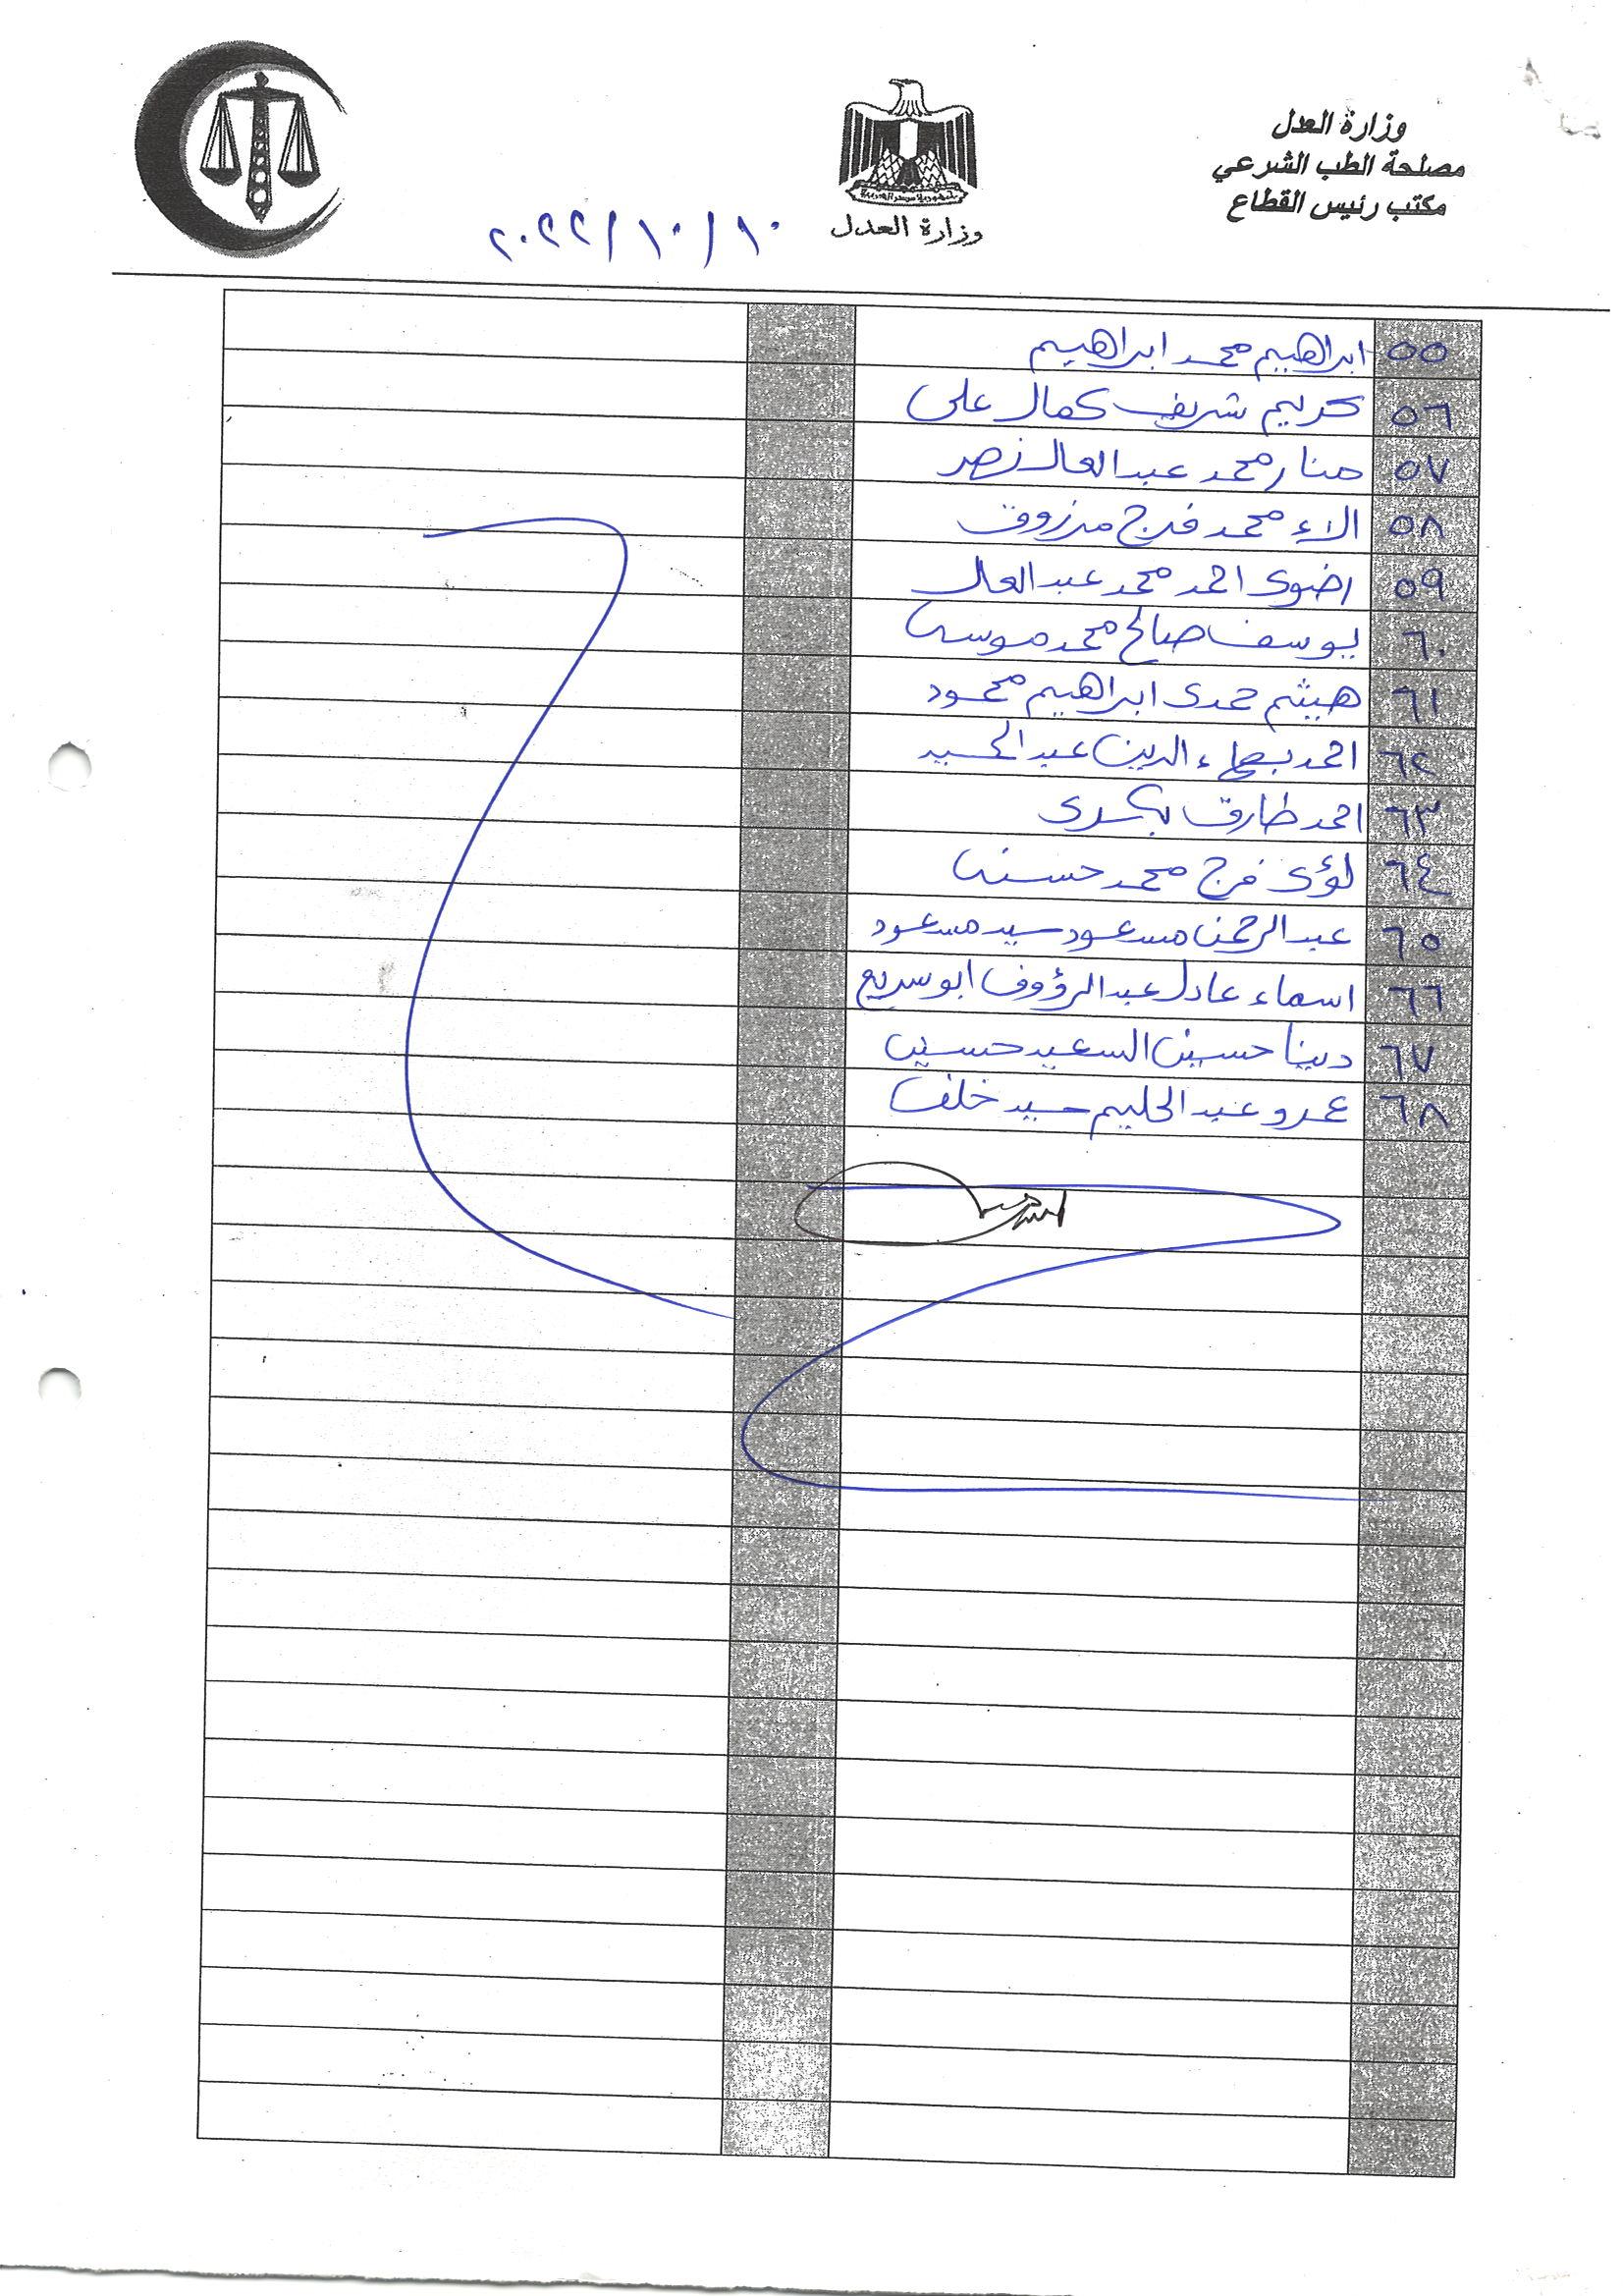 وزارة العدل
مصلحة الطب الشرعي
مكتب رئيس القطاع
وزارة العدل
٢٠٢٢/١٠/١٠
٥٥ ابراهيم محمد ابراهيم
٥٦ كريم شريف كمال على
٥٧ منار محمد عبد العال نصر
٥٨ الاء محمد فرج مرزوق
٥٩ رضوى احمد محمد عبد العال
٦٠ يوسف صالح محمد موسى
٦١ هيثم حمدى ابراهيم محمود
٦٢ احمد بهاء الدين
٦٣ احمد طارق بكرى
٦٤ لؤى فرج محمد حسنى
٦٥ عبد الرحمن مسعود سيد مسعود
٦٦ اسماء عادل عبد الرؤوف ابو سريع
٦٧ دينا حسين السعيد حسين
٦٨ عمرو عبد الحليم سيد خلف